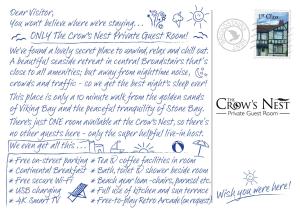 Dear Visitor,
You wont believe where were staying...
ONLY The Crow's Nest Private Guest Room!
We've found a lovely secret place to unwind, relax and chill out.
A beautiful seaside retreat in central Broadstairs that's
close to all amenities; but away from nighttime noise,
crowds and traffic - so we get the best night's sleep ever!
This place is only a 10 minute walk from the golden sands
of Viking Bay and the peaceful tranquility of Stone Bay.
There's just ONE room available at the Crow's Nest, so there's
no other guests here - only the super helpful live-in host.
We even get all this...
* Free on-street parking
* Continental Breakfast
* Free secure Wi-Fi
* USB charging
* 4K Smart TV
* Tea & coffee facilities in room
* Bath, toilet & shower beside room
* Beach gear loan - chairs, parasol etc.
* Full use of kitchen and sun terrace
* Free-to-play Retro Arcade (on request)
1st Class
CROW'S NEST
Private Guest Room
Wish you were here!